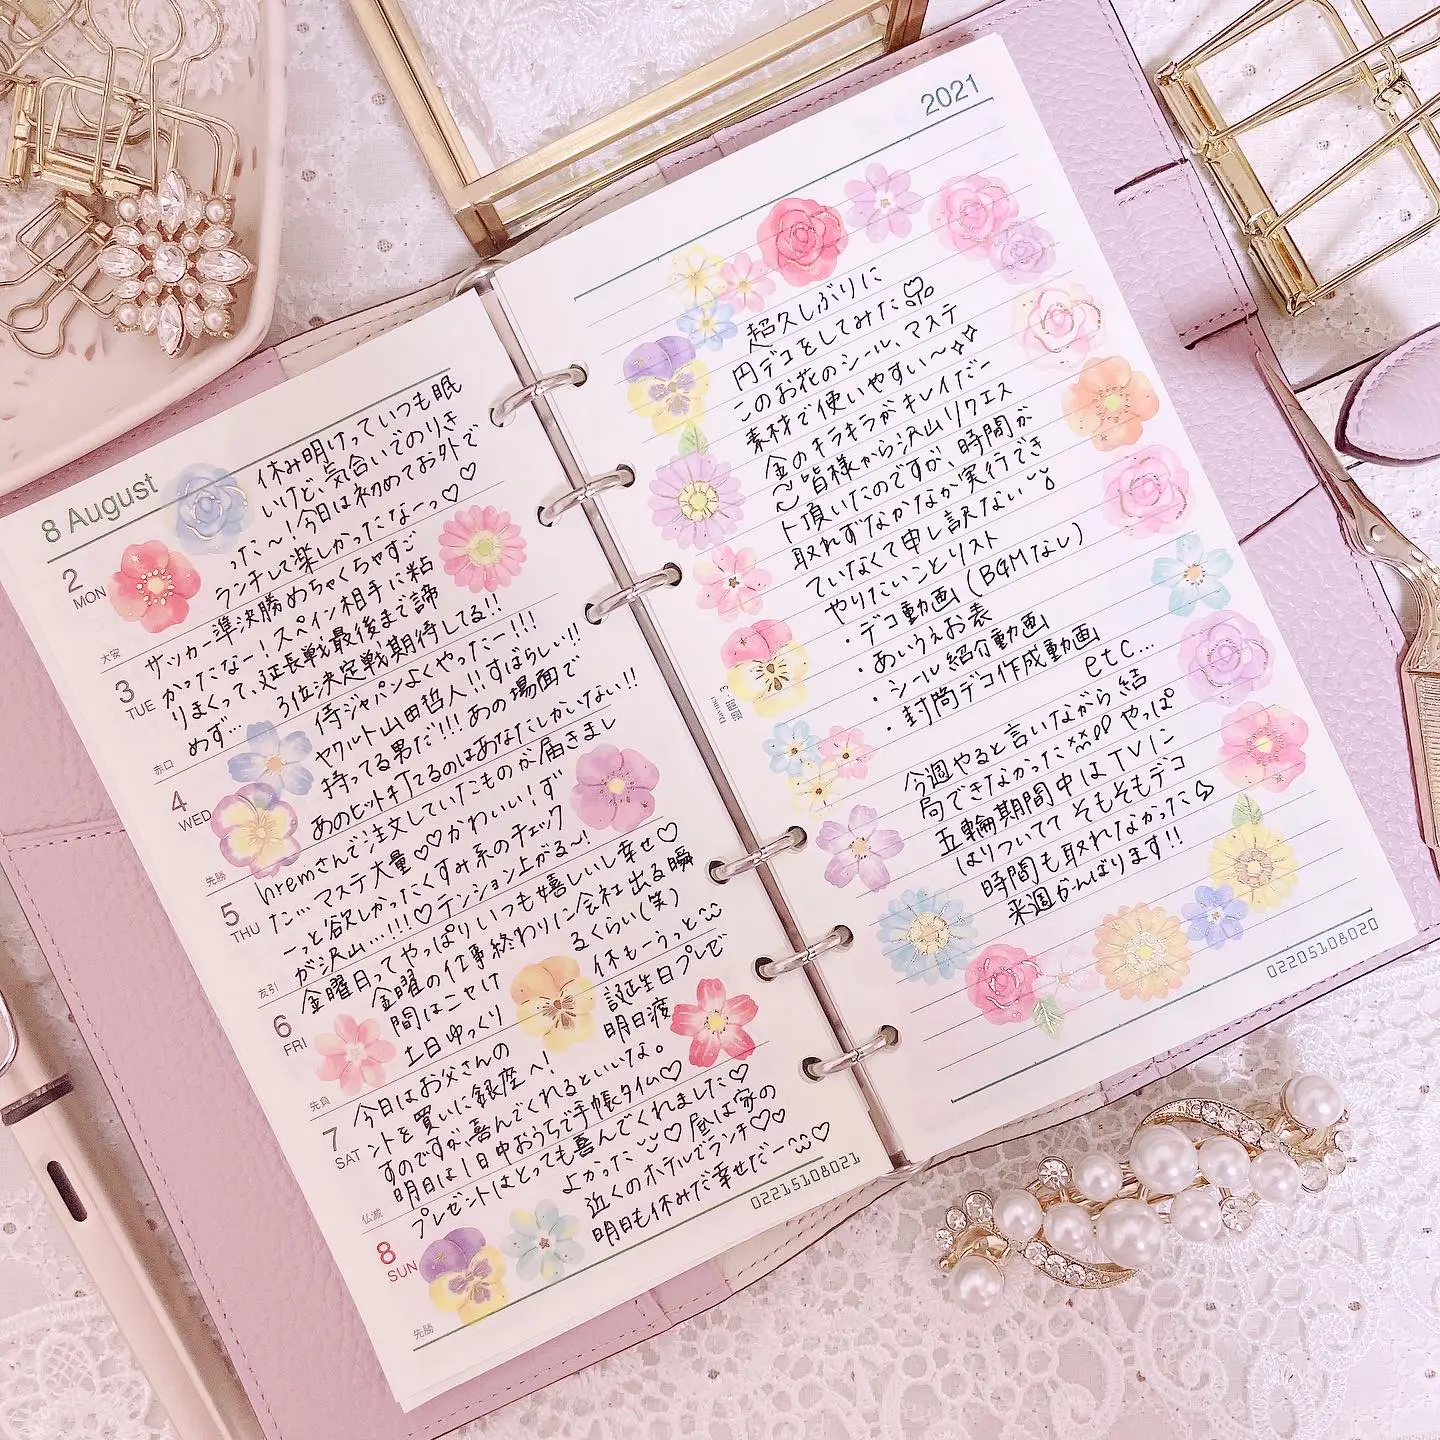 8 August
2
MON
大安
休み明けっていつも眠
いけど、気合いでのりき
った〜!今日は初めてお外で
ランチして楽しかったなーっ♡♡
3
TUE
赤口
サッカー準決勝めちゃくちゃすご
かったなー!スペイン相手に粘
りまくって、延長戦最後まで諦
めず… 3位決定戦期待してる!!
4
WED
先勝
侍ジャパンよくやったー!!!
ヤクルト山田哲人!!すばらしい!!
持ってる男だ!!!あの場面で
あのヒット打てるのはあなたしかいない!!
5
THU
友引
hremさんで注文していたものが届きまし
た…マステ大量♡♡かわいい!ず
ーっと欲しかったくすみ系のチェック
が沢山…!!!♡テンション上がる〜!
6
FRI
先負
金曜日ってやっぱりいつも嬉しいし幸せ♡
金曜の仕事終わりに会社出る瞬
間はにやけるくらい(笑)
土日ゆっくり休もーうっと
7
SAT
仏滅
今日はお父さんの誕生日プレゼ
ントを買いに銀座へ!明日渡
すのですが、喜んでくれるといいな。
明日は1日中おうちで手帳タイム♡
8
SUN
先勝
プレゼントはとっても喜んでくれました♡
よかった♡昼は家の
近くのホテルでランチ♡♡
明日も休みだ幸せだー♡
02215108021
2021
超久しぶりに
円デコをしてみた
このお花のシール、マステ
素材で使いやすい〜✧✧
金のキラキラがキレイだー
皆様から沢山リクエス
ト頂いたのですが、時間が
取れずなかなか実行でき
ていなくて申し訳ない
やりたいことリスト
・デコ動画(BGMなし)
・あいうえお表
・シール紹介動画
・封筒デコ作成動画
etc...
今週やると言いながら結
局できなかった やっぱ
五輪期間中はTVに
はりついてて そもそもデコ
時間も取れなかった
来週がんばります!!
週間 3
Davinci
02205108020